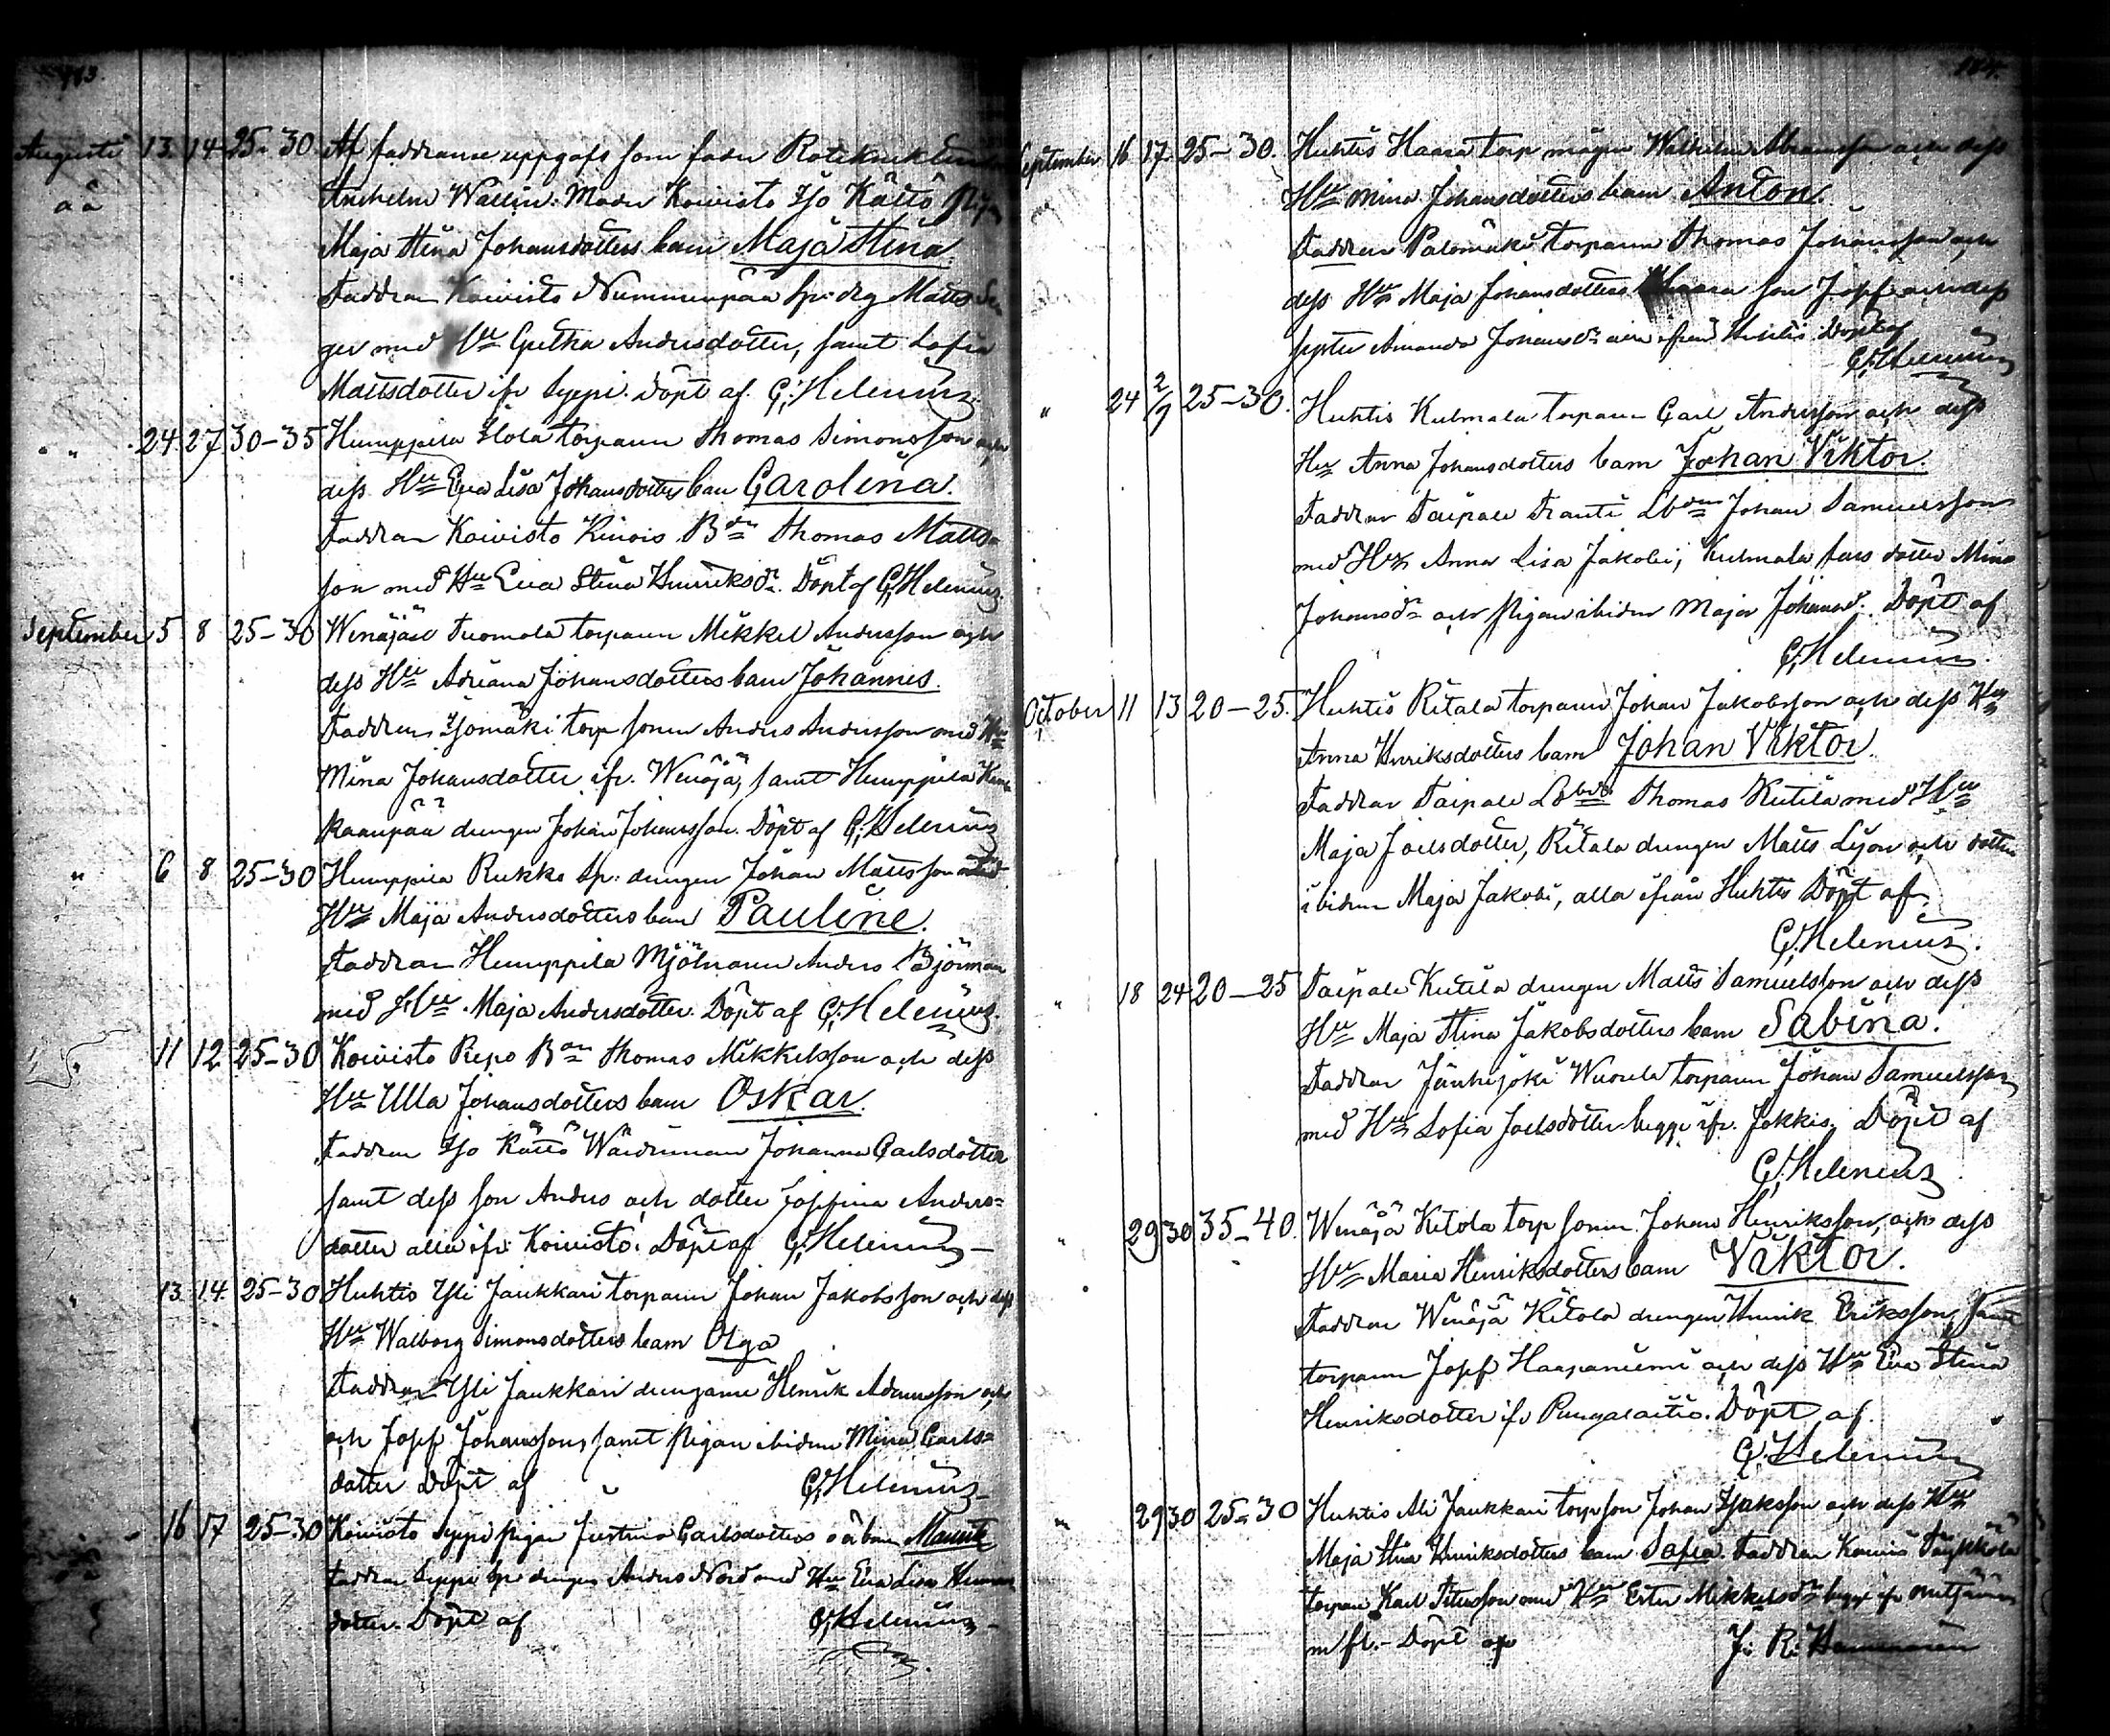 113.
Augusti 13. 14. 25-30 Af faddrarne uppgafs som fader
oä Wallin. Moder Koivisto Iso Kättö
Maja Stina Johansdotters barn Maja Stina.
Faddrar Koivisto Nummenpää Matts
ger med Hu Andersdotter, samt Sofia
Mattsdotter ifr Seppi. Döpt af G. Helenius.
" 24. 27 30-35 Humppila Ilola torparen Thomas Simonsson och
dess Hu Eva Lisa Johansdotters barn Carolina.
Faddrar Koivisto Bdn Thomas Matts-
son med Hu Eva Stina Henriksdr. Döpt af G. Helenius.
September 5 8 25-30 Tuomola torparen Mikkel Andersson och
dess Hu Adriana Johansdotters barn Johannes.
Faddrar Isomäki torp sonen Anders Andersson med Hu
Mina Johansdotter ifr. Wenäjä, samt Humppila
kaanpää drengen Johan Johansson. Döpt af G. Helenius
" 6 8 25-30 Humppila Rukko Sp: drengen Johan Mattsson
Hu Maja Andersdotters barn Pauline.
Faddrar Humppila Mjölnaren Anders Björman
med Hu Maja Andersdotter. Döpt af G. Helenius.
" 11 12 25-30 Koivisto Repo Bdn Thomas Mikkelsson och dess
Hu Ulla Johansdotters barn Oskar.
Faddrar Iso Kättö Wärdinnan Johanna Carlsdotter
samt dess son Anders och dotter Josefina Anders-
dotter alla ifr. Koivisto. Döpt af G. Helenius
" 13. 14. 25-30 Huhtis Yli Jaukkari torparen Johan Jakobsson och dess
Hu Walborg Simonsdotters barn Olga
Faddrar Yli Jaukkari drengarne Henrik Adamsson och
och Josef Johansson, samt pigan ibidem Mina Carls-
dotter Döpt af G. Helenius
" 16 17 25-30 Koivisto Seppi pigan Justina Carlsdotters oä barn
oä Faddrar Seppi Sp: drengen Anders Nord med Hu Eva Lisa
dotter. Döpt af G. Helenius
114.
September 16 17. 25-30. Huhtis Haara torp mågen Wilhelm Abramsson och dess
Hu Mina Johansdotters barn Anton.
Faddrar Palomäki torparen Thomas Johansson och
dess Hu Maja Johansdotter, Haara son Josef och dess
syster Amanda Johansdr alla ifrån Huhtis Döpt af
G. Helenius
" 24 2/9 25-30. Huhtis Kulmala torparen Carl Andersson och dess
Hu Anna Johansdotters barn Johan Viktor.
Faddrar Taipale Franti Lbdn Johan Samuelsson
med Hu Anna Lisa Jakobi, Kulmala dotter Mina
Johansdr och pigan ibidem Maja Johansd. Döpt af
G. Helenius.
October 11 13 20-25. Huhtis Ritala torparen Johan Jakobsson och dess Hu
Anna Henriksdotters barn Johan Viktor.
Faddrar Taipale Thomas Kutila med Hu
Maja Joelsdotter, Ritala drengen Matts och dotter
ibidem Maja Jakobi, alla ifrån Huhtis Döpt af
G. Helenius.
" 18 24 20-25 Taipale Kutila drengen Matts Samuelsson och dess
Hu Maja Stina Jakobsdotters barn Sabina.
Faddrar Jänhijoki Wuorela torparen Johan Samuelsson
med Hu Sofia Joelsdotter begge ifr. Jokkis. Döpt af
G. Helenius
" 29 30 35-40. Wenäjä Kitola torp sonen Johan Henriksson, och dess
Hu Maria Henriksdotters barn Viktor.
Faddrar Wenäjä Kitola drengen Henrik Eriksson, samt
torparen Josef Haapaniemi och dess Hu Eva Stina
Henriksdotter ifr Döpt af.
G. Helenius
" 29 30 25-30 Huhtis Ali Jaukkari torp son Johan Isaksson och dess Hu
Maja Stina Henriksdotters barn Sofia. Faddrar
torparen Karl Petersson med Hu Ester Mikkelsdr begge ifr
m fl.- Döpt af J. R.